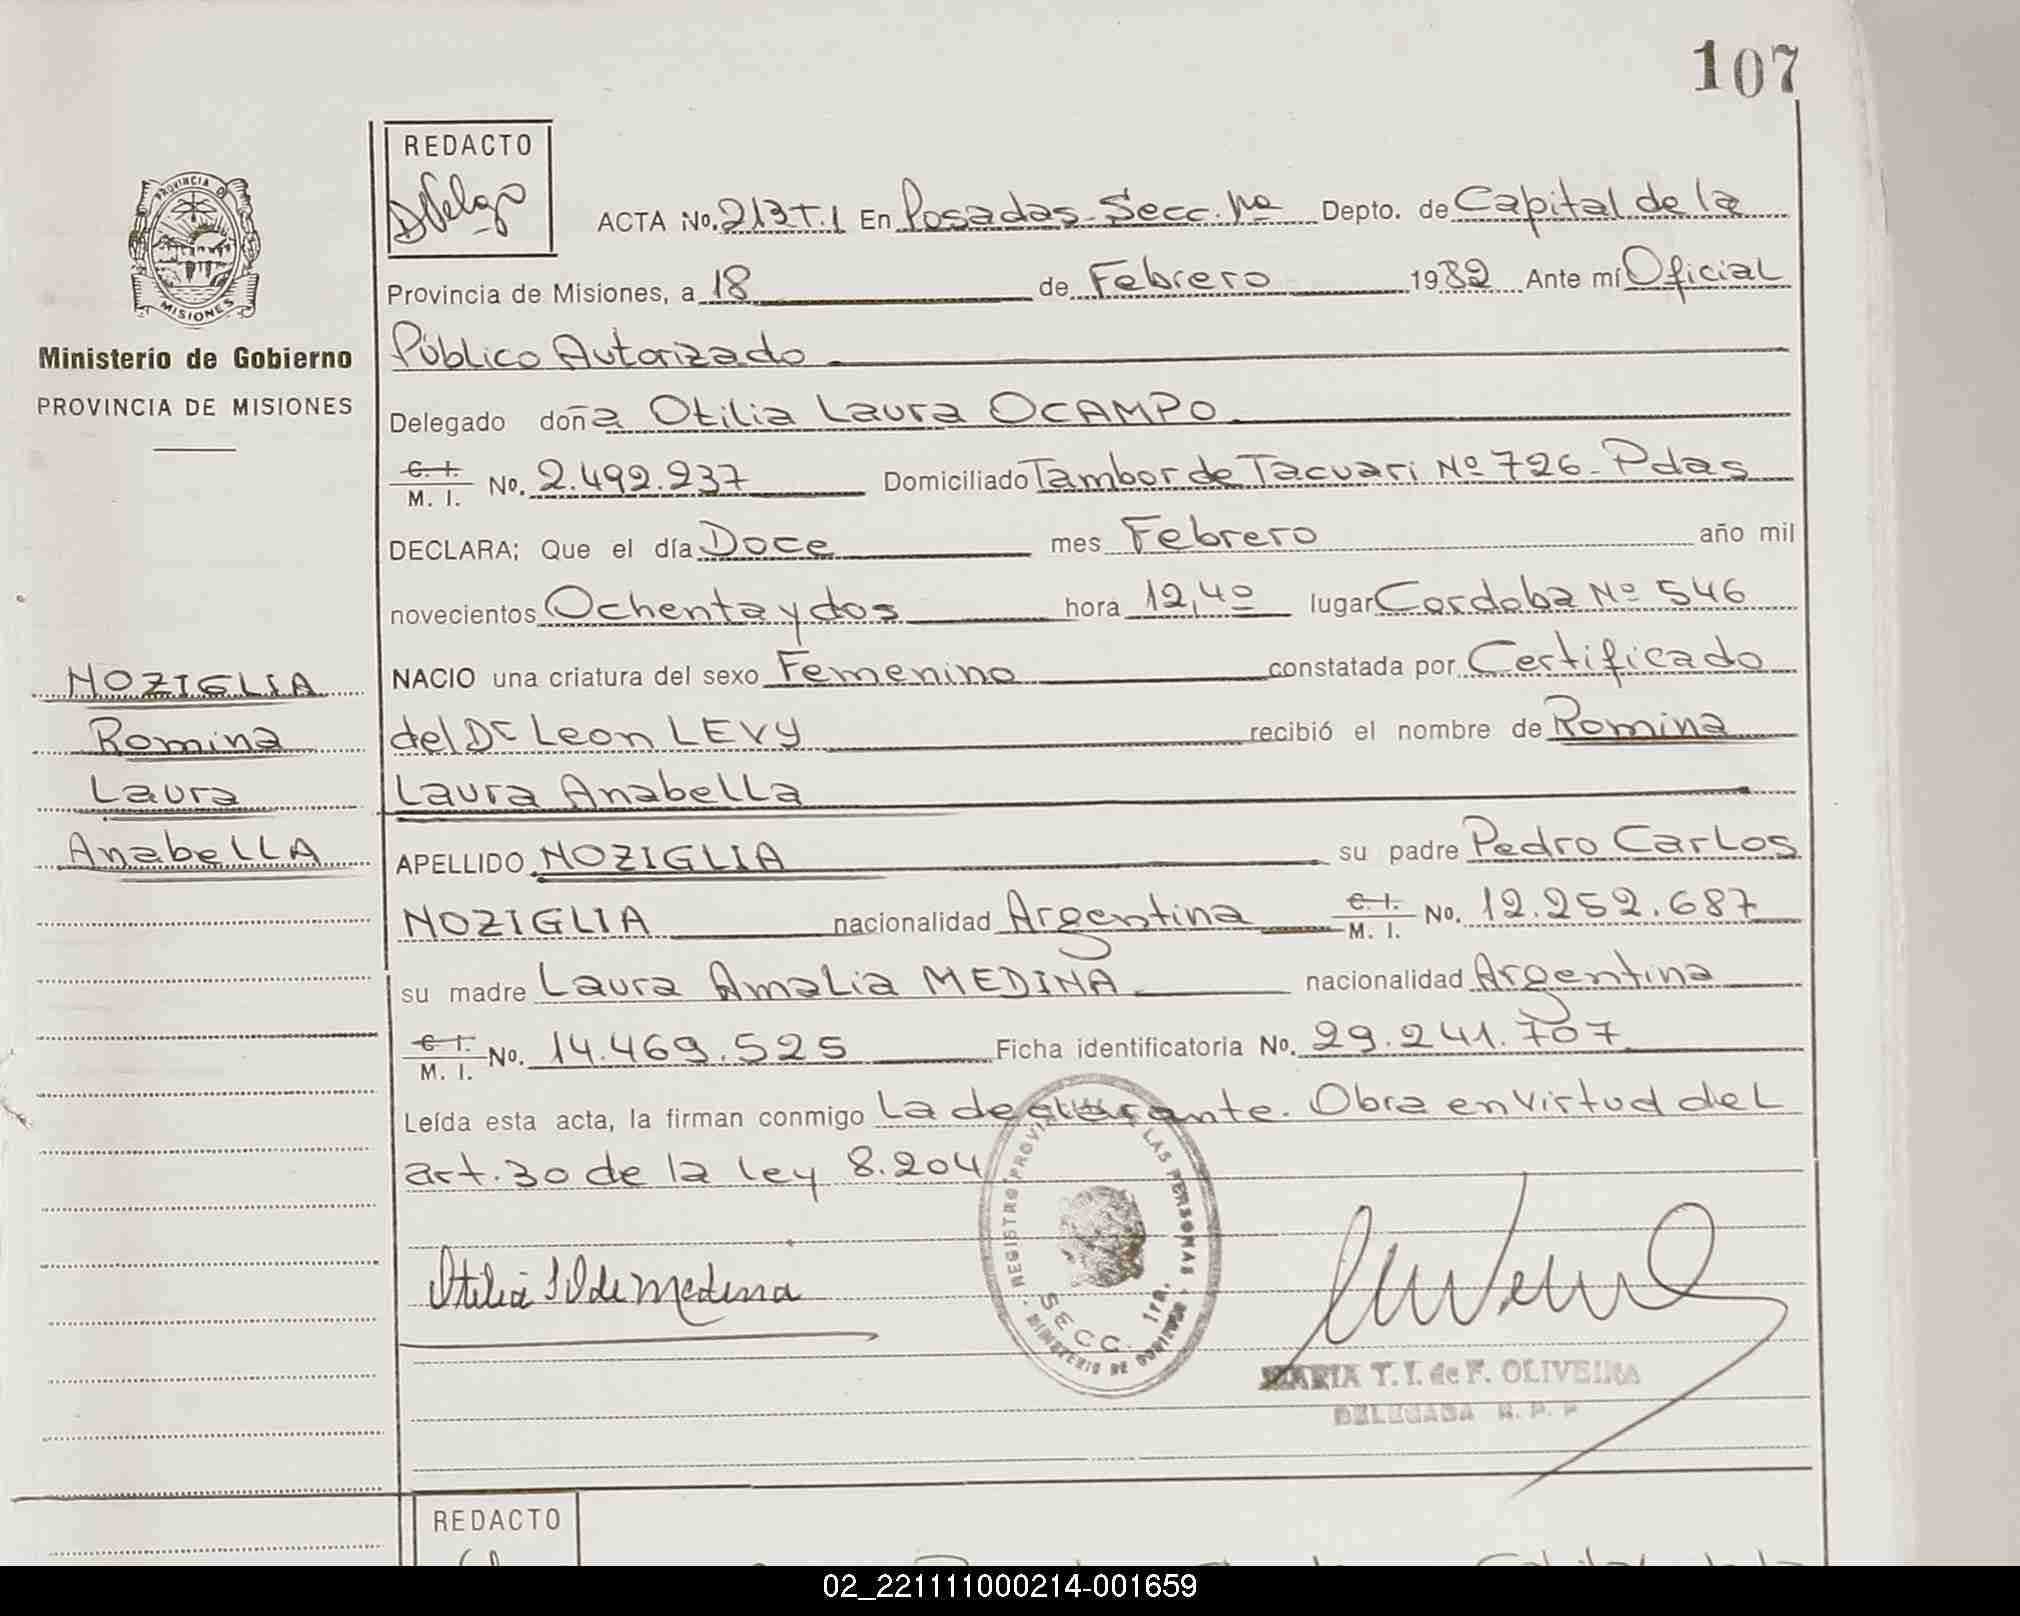 107
REDACTO
ACTA No. 213 T.1 En Posadas Secc. 1ra Depto. de Capital de la
Provincia de Misiones, a 18 de Febrero 1982 Ante mí Oficial
Público Autorizado
Delegado doña Otilia Laura OCAMPO
C. I. / M. I. No. 2.492.237 Domiciliado Tambor de Tacuari Nº 726 - Pdas
DECLARA; Que el día Doce mes Febrero año mil
novecientos Ochenta y dos hora 12,40 lugar Cordoba Nº 546
NACIO una criatura del sexo Femenino constatada por Certificado
del Dr Leon LEVY recibió el nombre de Romina
Laura Anabella
APELLIDO NOZIGLIA su padre Pedro Carlos
NOZIGLIA nacionalidad Argentina C. I. / M. I. No. 12.252.687
su madre Laura Amalia MEDINA nacionalidad Argentina
C. I. / M. I. No. 14.469.525 Ficha identificatoria No. 29.241.707
Leída esta acta, la firman conmigo La declarante. Obra en virtud del
art. 30 de la ley 8.204
Otilia L O de Medina
REGISTRO PROVINCIAL DE LAS PERSONAS
SECC. 1ra.
MINISTERIO DE GOBIERNO
MARIA T. I. de F. OLIVEIRA
DELEGADA R. P. P.
PROVINCIA DE
MISIONES
Ministerio de Gobierno
PROVINCIA DE MISIONES
NOZIGLIA
Romina
Laura
Anabella
REDACTO
02_221111000214-001659